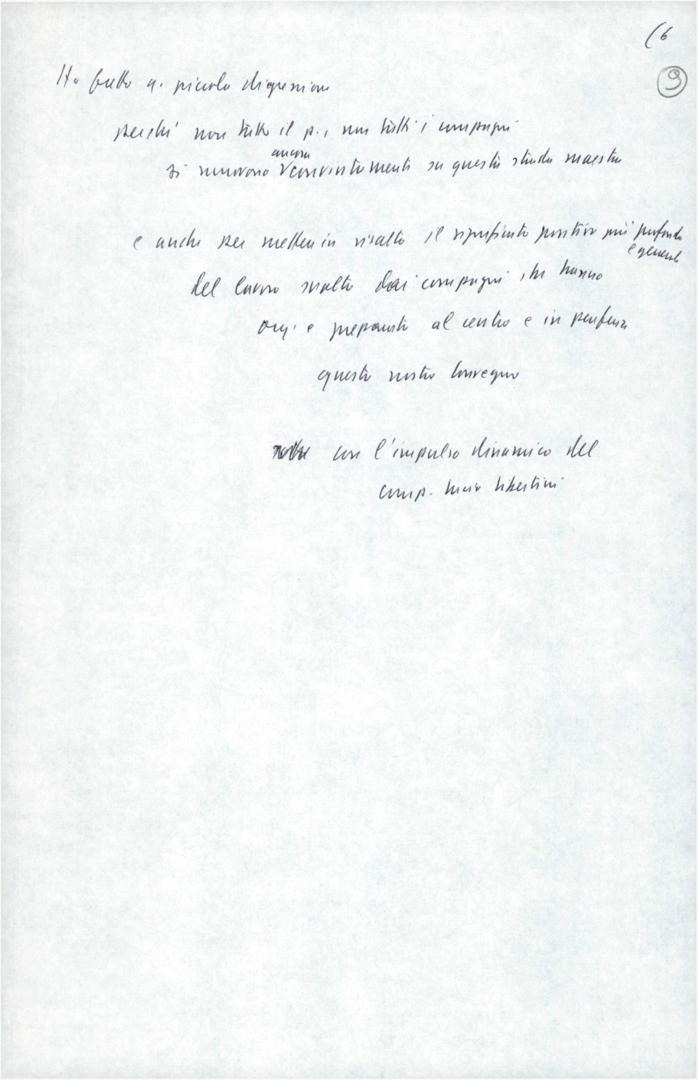 (6
9
Ho fatto q. piccola digressione
perché non tutto il p., non tutti i compagni
ancora
si muovono convintamente su questa strada maestra
e anche per mettere in risalto il significato positivo più profondo
e generale
del lavoro svolto dai compagni che hanno
org. e preparato al centro e in periferia
questo nostro convegno
con l'impulso dinamico del
comp. Lucio Libertini